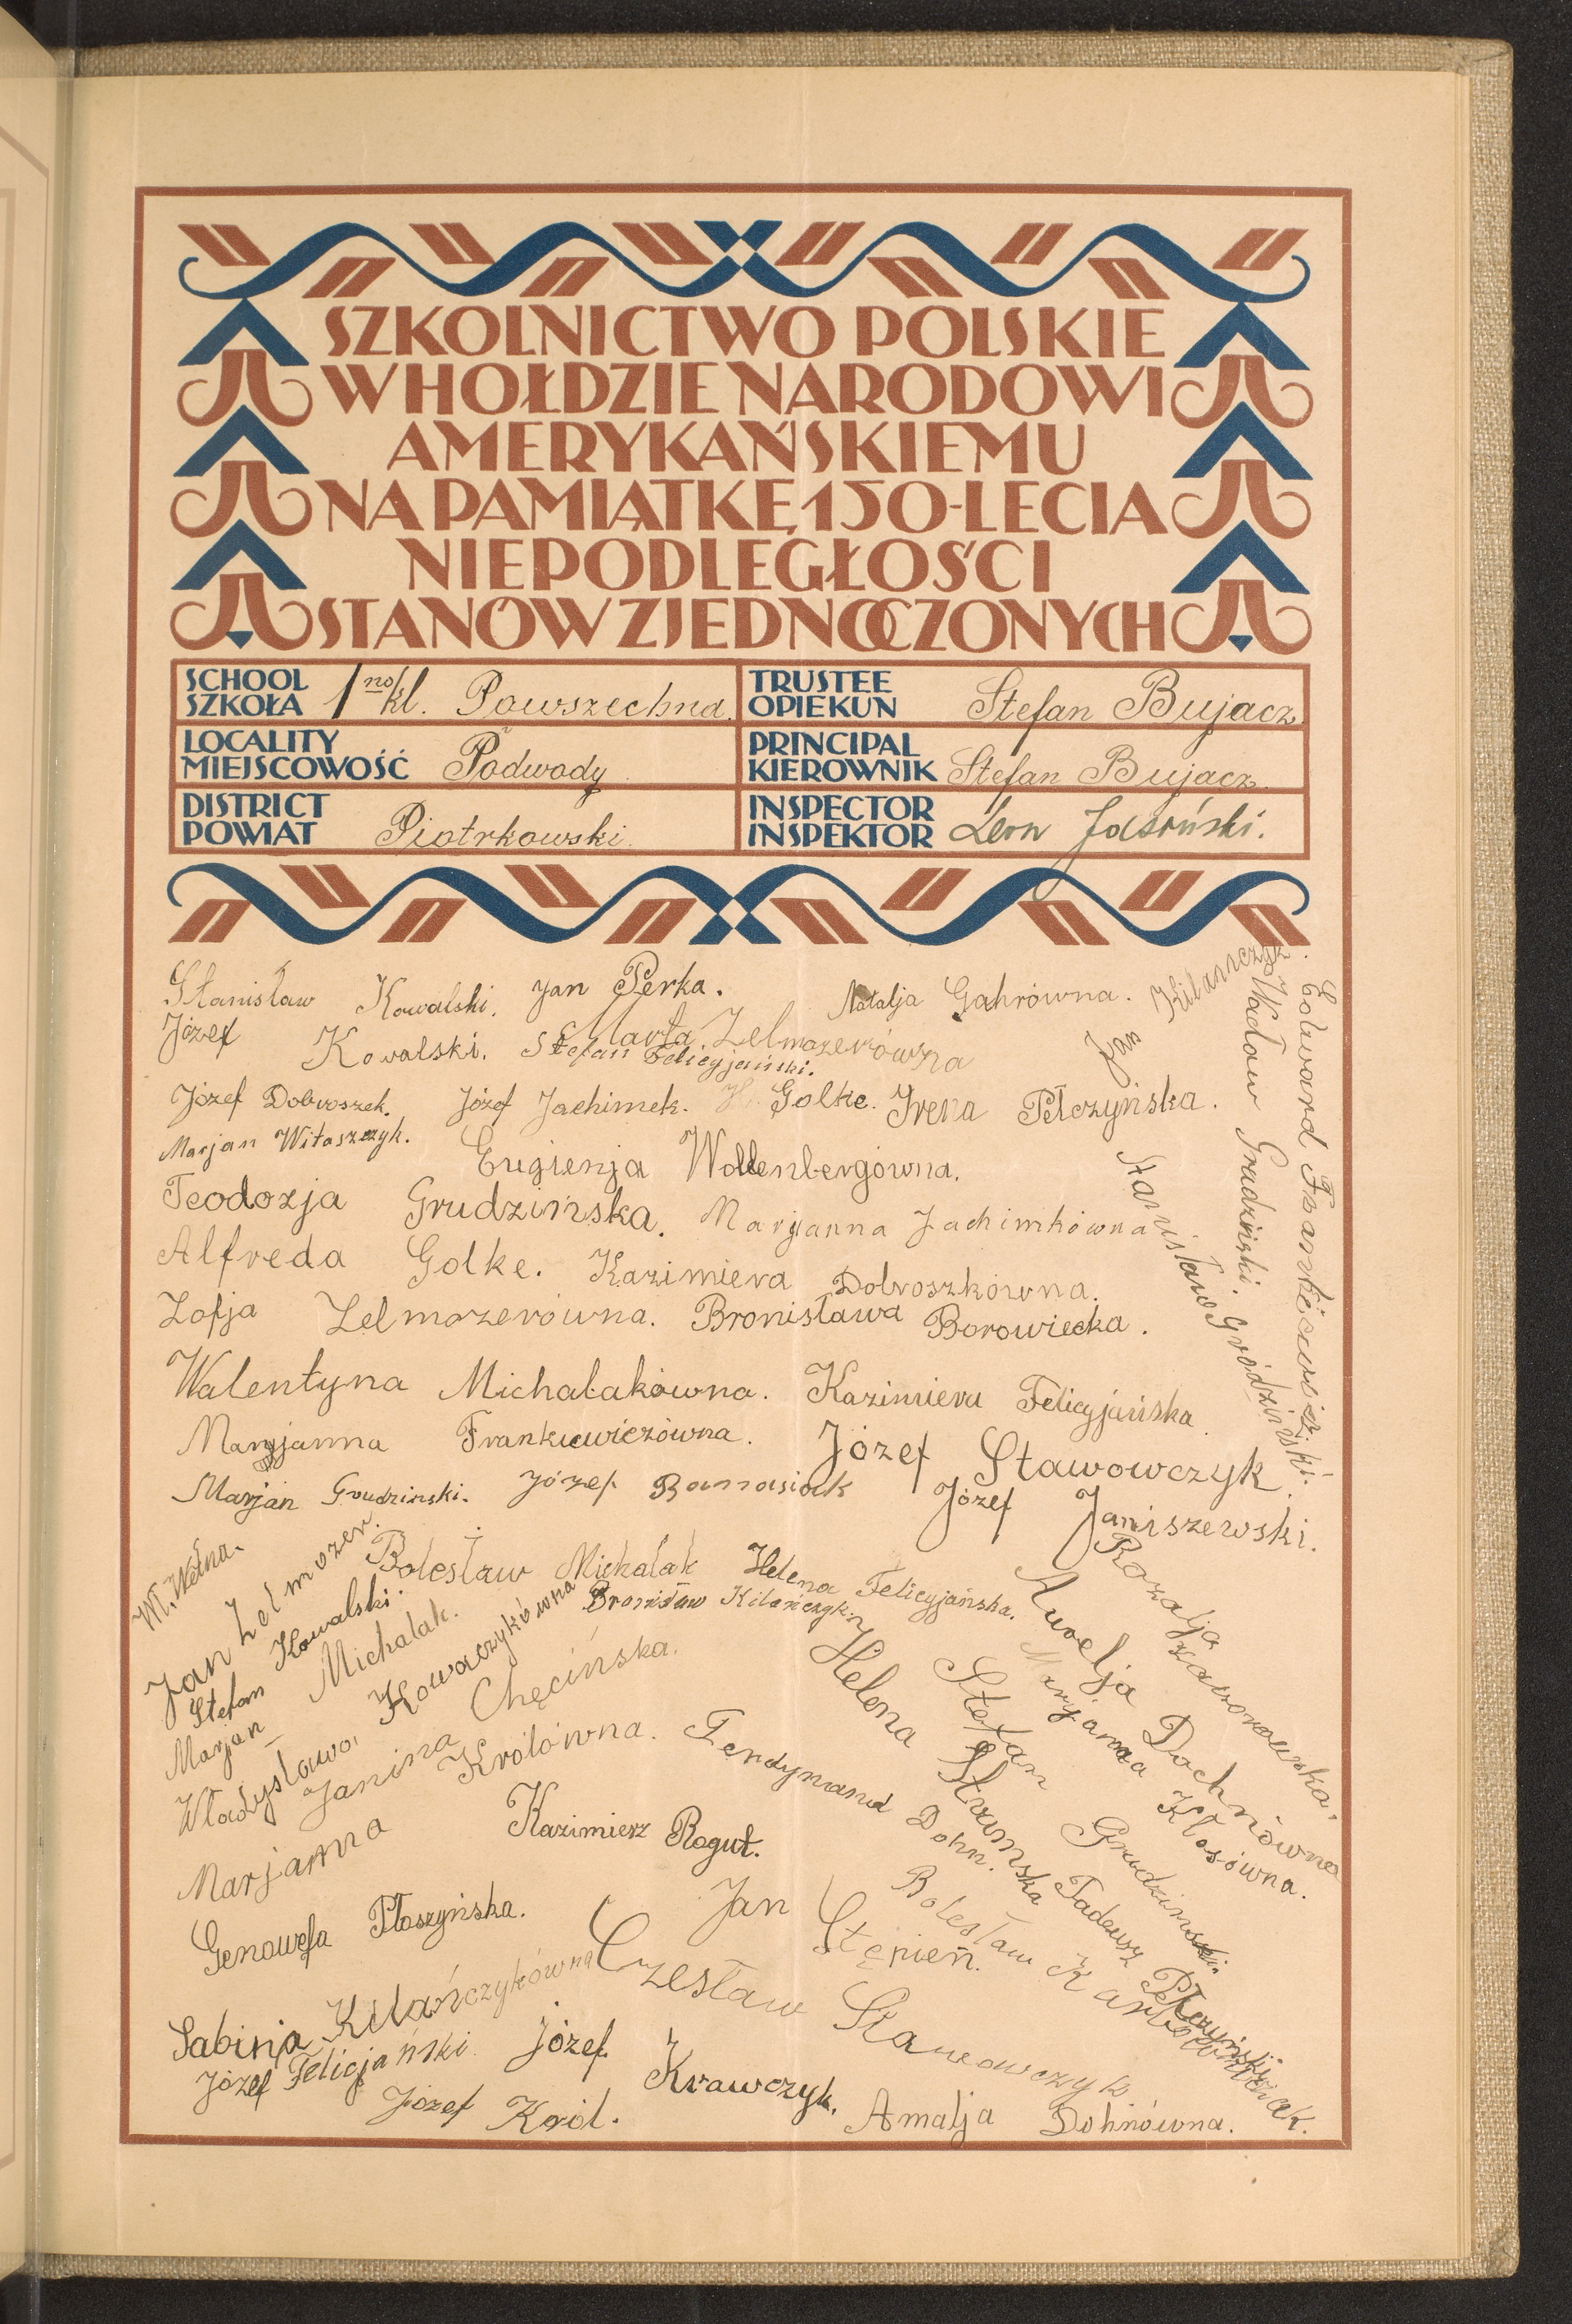 SZKOLNICTWO POLSKIE
W HOŁDZIE NARODOWI
AMERYKAŃSKIEMU
NA PAMIĄTKĘ 150-LECIA
NIEPODLEGŁOŚCI
STANÓW ZJEDNOCZONYCH
SCHOOL
SZKOŁA 1 no kl. Powszechna.
TRUSTEE
OPIEKUN Stefan Bujacz
LOCALITY
MIEJSCOWOŚĆ Podwody
PRINCIPAL
KIEROWNIK Stefan Bujacz.
DISTRICT
POWIAT Piotrkowski.
INSPECTOR
INSPEKTOR Leon Jasiński.
Stanisław Kowalski.
Jan Perka.
Natalja Gahrówna.
Jan Kilanczyk.
Józef Kowalski.
Marta Zelmozerówna
Stefan Felicyjański.
Józef Dobroszek.
Józef Jachimek.
Golke.
Irena Pełczyńska.
Marjan Witaszczyk.
Eugienja Wollenbergówna.
Teodozja Grudzińska.
Marjanna Jachimkówna
Alfreda Golke.
Kazimiera Dobroszkówna.
Zofja Zelmozerówna.
Bronisława Borowiecka.
Walentyna Michalakówna.
Kazimiera Felicyjańska
Marjanna Frankiewiczówna.
Józef Stawowczyk.
Marjan Grudzinski.
Józef Banasiak
Józef Janiszewski.
Edward Frankiewicz.
Wacław Grudziński.
Stanisław Gródziński.
M. Wełna.
Jan Zelmozer.
Bolesław Michalak
Helena Felicyjańska.
Stefan Kowalski.
Bronisław Kilańczyk.
Marjan Michalak.
Władysława Kowaczykówna
Janina Chęcińska.
Marjanna Królówna.
Rozalja
Aurelja Dochnówna
Marjanna Kłosówna.
Stefan Grudzinski.
Helena Stramska
Ferdynand Dohn.
Tadeusz
Kazimierz Rogut.
Genowefa Płoszyńska.
Jan Stępień.
Bolesław
Czesław
Sabina Kilańczykówna
Józef Felicjański
Józef Krawczyk.
Józef Król.
Amalja Dohnówna.